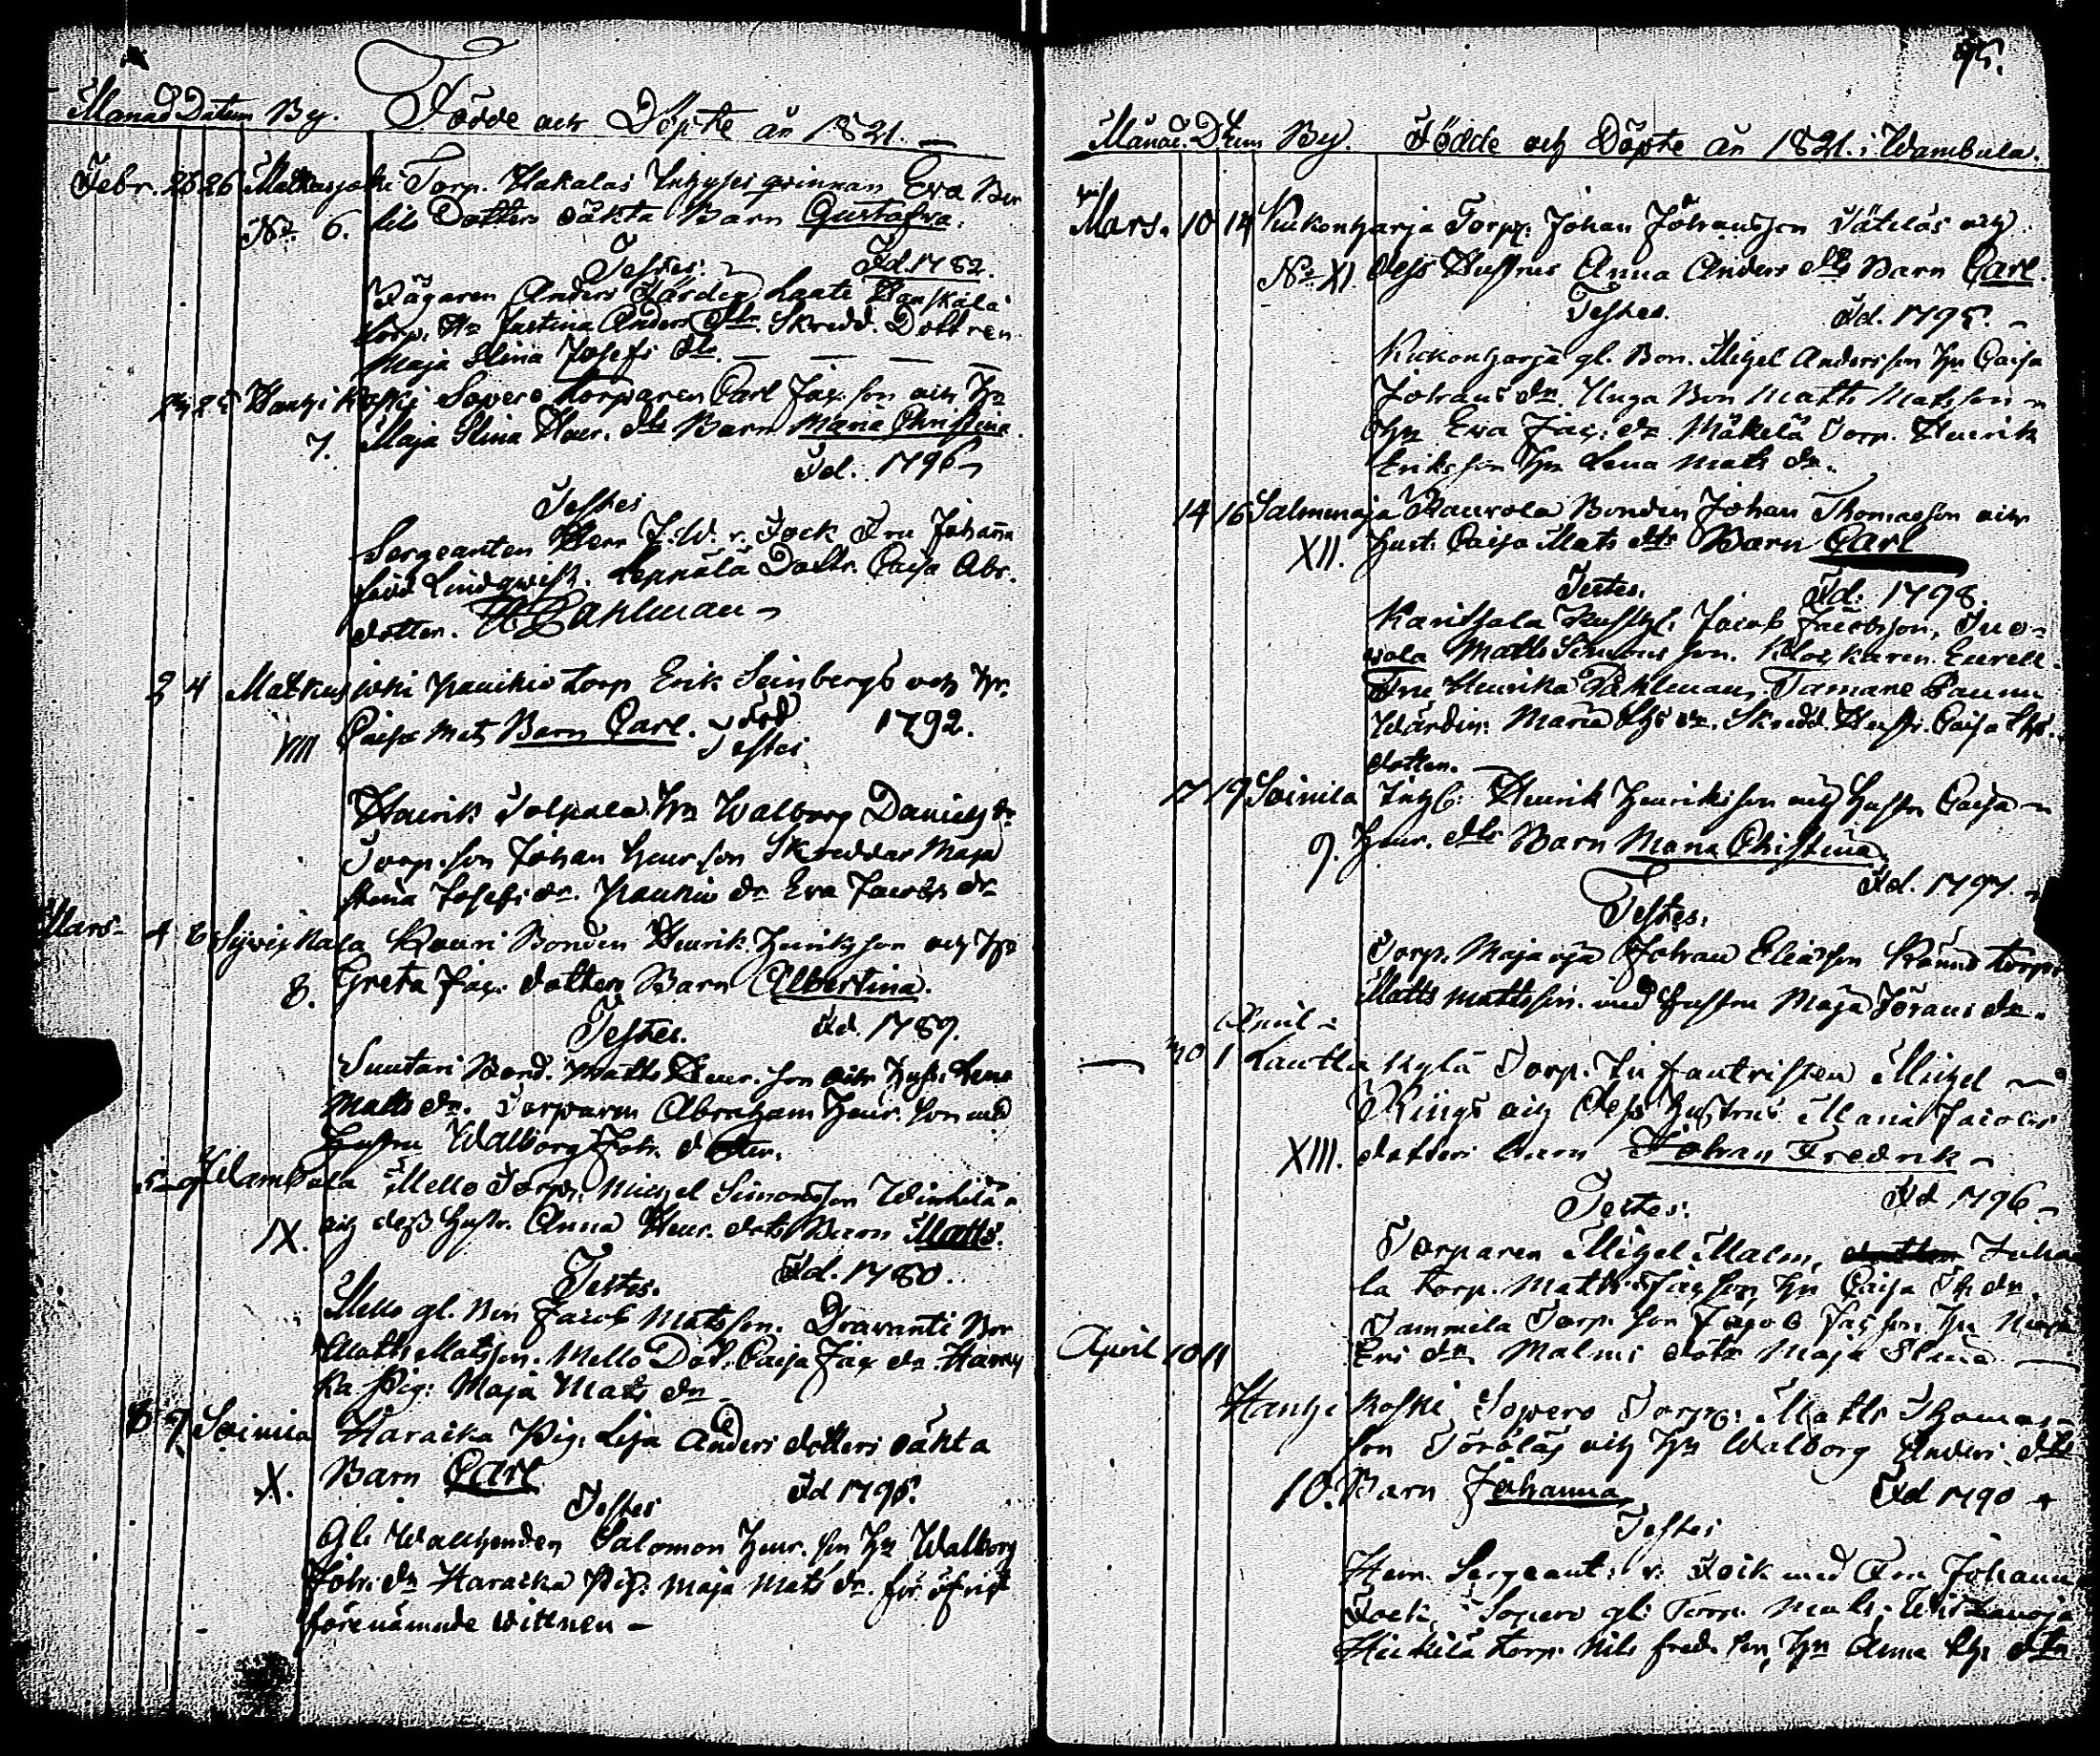 Månad Datum By. Födde och Döpte år 1821.
Febr. 25 26 Matkusjoki Torp. Hakalas Inhyses qvinnan Eva
No. 6. Dotters oäkta Barn Gustafva.
Testes. Fd. 1782.
Anders Färdig, Laati Hanskala
torp. Hu Justina Anders dtr. Skredd. Dottren
Maja Stina Josefs dtr.
24 25 Hanhi Koski Sopero torparen Carl Jac. son och Hu
7. Maja Stina Henr. dtr Barn Maria Christina.
Fd. 1796
Testes
Sergeanten Herr J. W. v. Fock Fru Johanna
född Lindqwist. Leppälä Dottr. Caisa Abr.
dotter. H Dahlman
2 4 Matkusjoki torp Erik Steinbergs och Hu.
VIII Caisa Mats Barn Carl. född 1792.
Testes
Henrik Hu Walborg Daniels dr
Torp. son Johan Henr. son Skreddar Maja
Stina Josefs dr. dr Eva Jacobs dr
Mars 4 6 Sywäskala Knuuri Bonden Henrik Henriksson och Hu
8. Greta Jac. dotters Barn Albertina.
Testes. Fd. 1789.
Suutari Bond. Matts Henr. son och Hust. Lena
Matts dr. Torparen Abraham Henr. son med
Hustru Walborg Joh. dotter.
5 9 Wambula Mello Torp. Michel Simonsson
IX. och dess Hustr. Anna Henr. dotrs Barn Matts.
Testes. Fd. 1780.
Mello gl. Bon Jacob Matsson. Dravanti Bon
Matts Matsson. Mello Dot. Caisa Jac dr. Haray
ka Pig: Maja Mats dr
8 9 Soinila Haraika Pig. Lisa Anders dotters oäkta
X. Barn Carl
Testes Fd 1795.
Gl. Salomon Henr. son Hu Walborg
Joh. dr Haraika Pig. Maja Mats dr. för öfrigt
förenämnde wittnen
95.
Månad. Dtum By. Födde och Döpte år 1821. i Wambula.
Mars. 10 14 Kukonharja Torp. Johan Johansson Tätiläs och
No. XI. dess Hustrus Anna Anders dtr Barn Carl.
Testes. Fd. 1795.
Kukonharja gl. Bon. Michel Andersson Hu Caisa
Johans dr. Unga Bon Matts Matsson
Hu Eva Jac: dr. Mäkelä Torp. Henrik
Eriksson Hu Lena Mats dr.
14 16 Salmenoja Raurola Bonden Johan Thomasson och
XII. Hust. Caisa Mats dtr Barn Carl
Testes. Fd. 1798.
Karihala Jacob Jacobsson,
Matts Simonsson. Klockaren. Eurell.
Fru Henrika Pahlman, Tamare
Wärdin. Maria dr. Skredd. Hustr. Caisa
dotter.
17 19 Soinila Inh: Henrik Henriksson och Hustr Caisa
9. Henr. dtr Barn Maria Christina.
Fd. 1797.
Testes.
Torp. Majaoja Johan Eliasson torp.
Matts Mattsson. med Hustru Maja Jörans dr.
April
30 1 Lautla Kylä Torp. Infantristen Michel
Rings och dess Hustrus Maria Jacobs
XIII. dotters barn Johan Fredrik
Testes. Fd 1796
Torparen Michel Malm, Juha
la torp. Matts Jacsson, Hu Caisa dr.
Tammela Torp. son Jacob Jac son, Hu Maja
Eri dr Malms dotr Maja Stina
April 10 11
Hanhi Koski Sopero Torp: Matts Thomas
son och Hu Walborg Anders dtr
10. Barn Johanna Fd 1790
Testes
Herr. Sergeant. v. Fock med Fru Johanna
Fock, Sopero gl. Torp. Mats.
Heikilä torp. Nils Fred. son, Hu Anna dtr